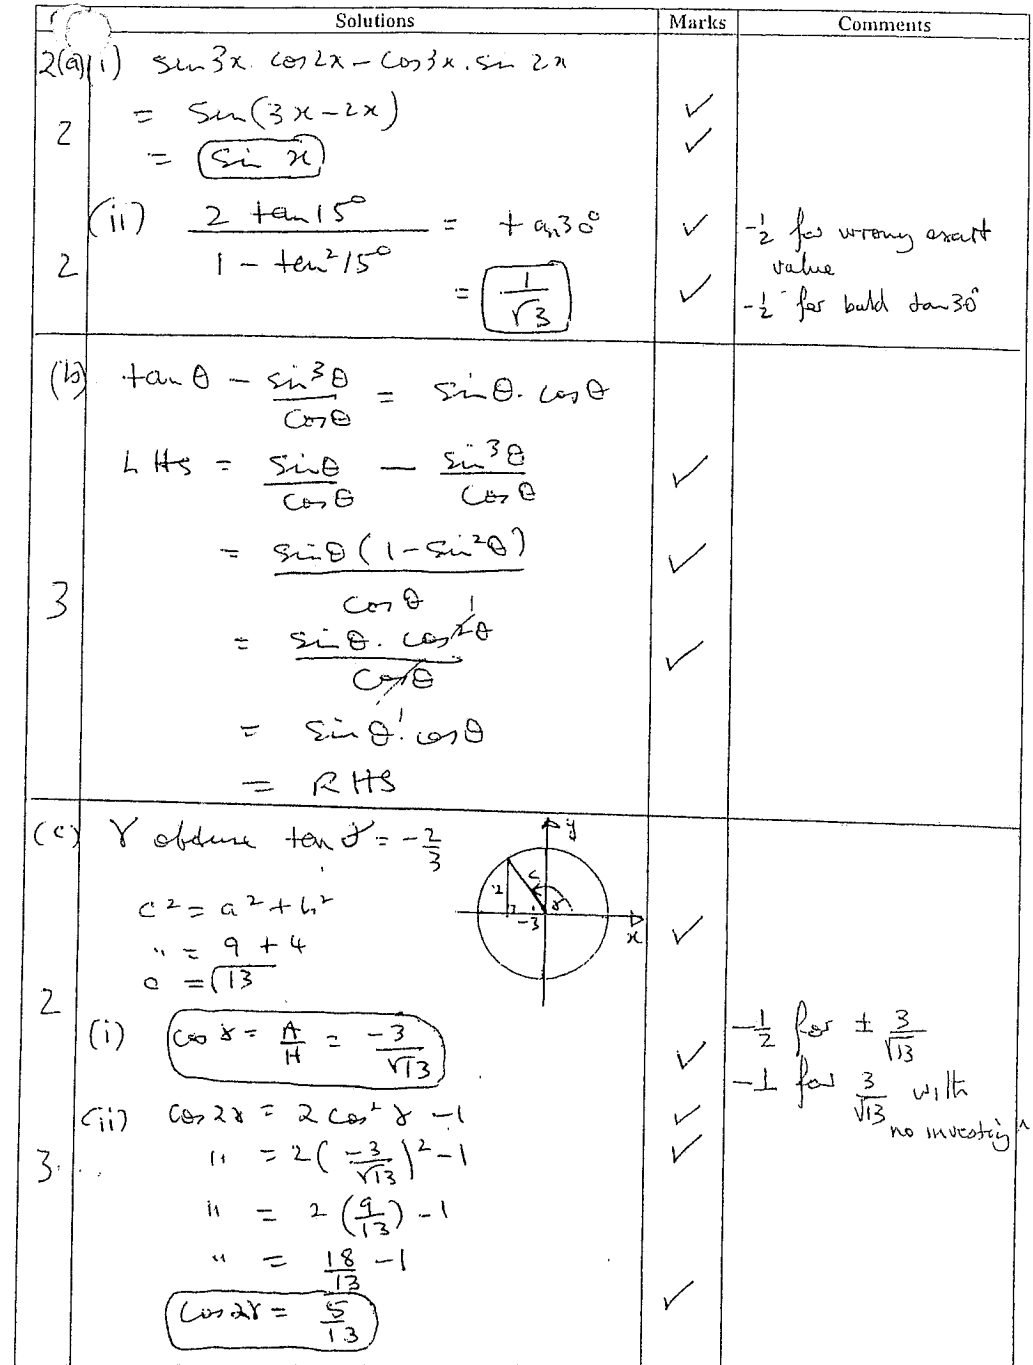 Solutions Marks Comments
2(a)(i) sin3x. cos2x – cos3x. sin 2x
= sin(3x – 2x) ✓
2
= sin x ✓
(ii) 2 tan15° / 1 – tan²15° = tan30° ✓ -½ for wrong exact value
2
= 1/√3 ✓ -½ for bald tan30°
(b) tan θ – sin³θ/cosθ = sinθ. cosθ
LHS = sinθ/cosθ – sin³θ/cosθ ✓
= sinθ(1 – sin²θ) / cosθ ✓
3
= sinθ. cos²θ / cosθ ✓
= sinθ. cosθ
= RHS
(c) γ obtuse tan γ = -2/3
y
2 c γ
-3 x
c² = a² + b² ✓
" = 9 + 4
c = √13
2
(i) cos γ = A/H = -3/√13 ✓
-½ for ± 3/√13
-1 for 3/√13 with
(ii) cos 2γ = 2 cos² γ – 1 ✓
" = 2(-3/√13)² – 1 ✓
3
" = 2(9/13) – 1
" = 18/13 – 1
cos2γ = 5/13 ✓